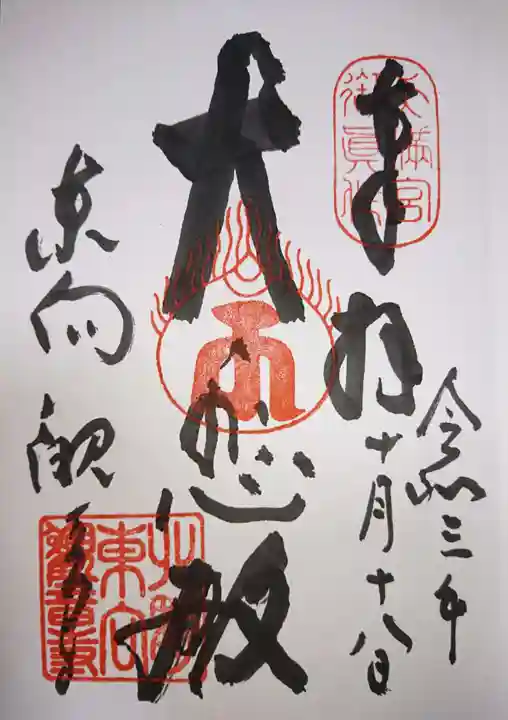 奉拝
令和三年
十月十八日
大悲殿
東向観音
天満宮
御眞仏
北野
東向
観音寺